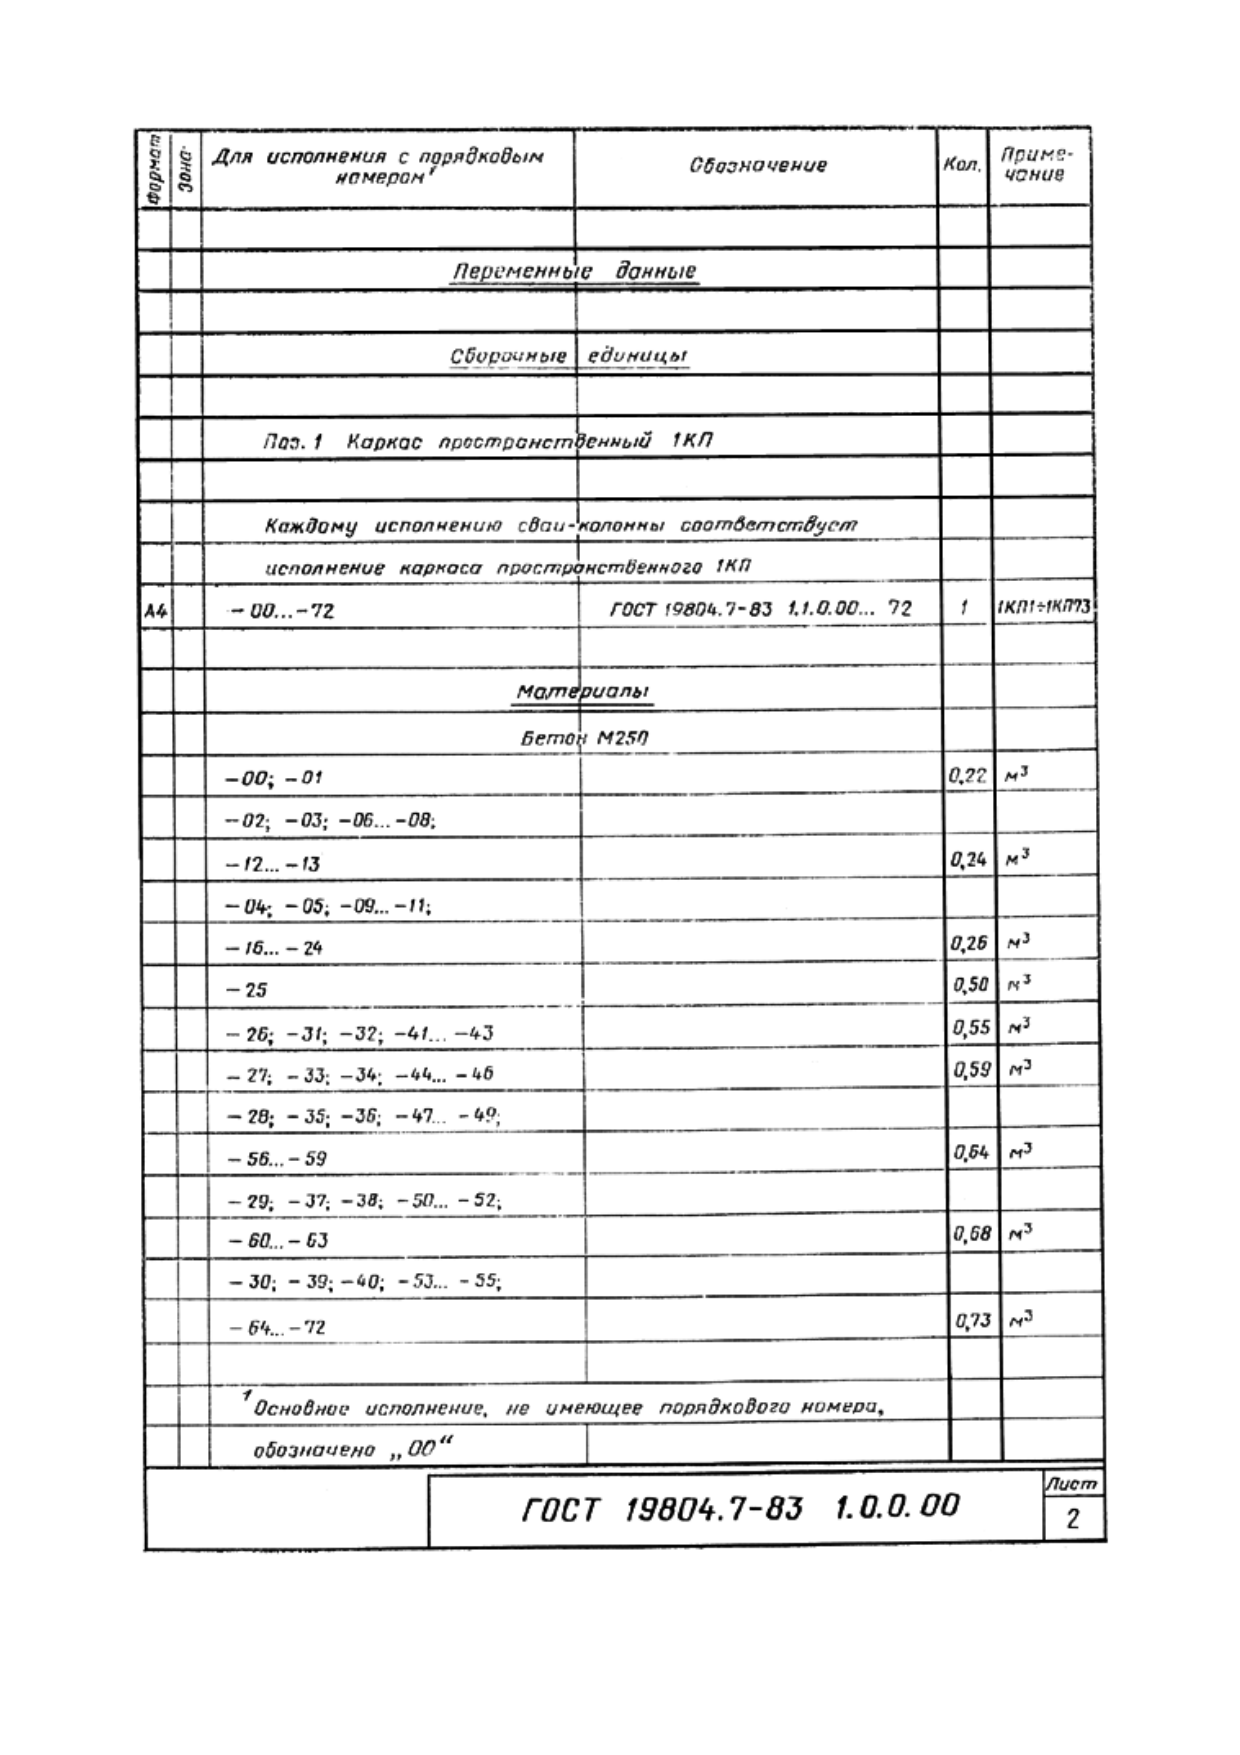 Формат Зона Для исполнения с порядковым номером¹ Обозначение Кол. Приме-чание
Переменные данные
Сборочные единицы
Поз. 1 Каркас пространственный 1КП
Каждому исполнению сваи-колонны соответствует
исполнение каркаса пространственного 1КП
А4 - 00...-72 ГОСТ 19804.7-83 1.1.0.00... 72 1 1КП1÷1КП73
Материалы
Бетон М250
-00; -01 0,22 м³
-02; -03; -06...-08;
-12...-13 0,24 м³
-04; -05; -09...-11;
-16...-24 0,26 м³
-25 0,50 м³
-26; -31; -32; -41...-43 0,55 м³
-27; -33; -34; -44...-46 0,59 м³
-28; -35; -36; -47...-49;
-56...-59 0,64 м³
-29; -37; -38; -50...-52;
-60...-63 0,68 м³
-30; -39; -40; -53...-55;
-64...-72 0,73 м³
¹ Основное исполнение, не имеющее порядкового номера,
обозначено „00“
ГОСТ 19804.7-83 1.0.0.00
Лист
2